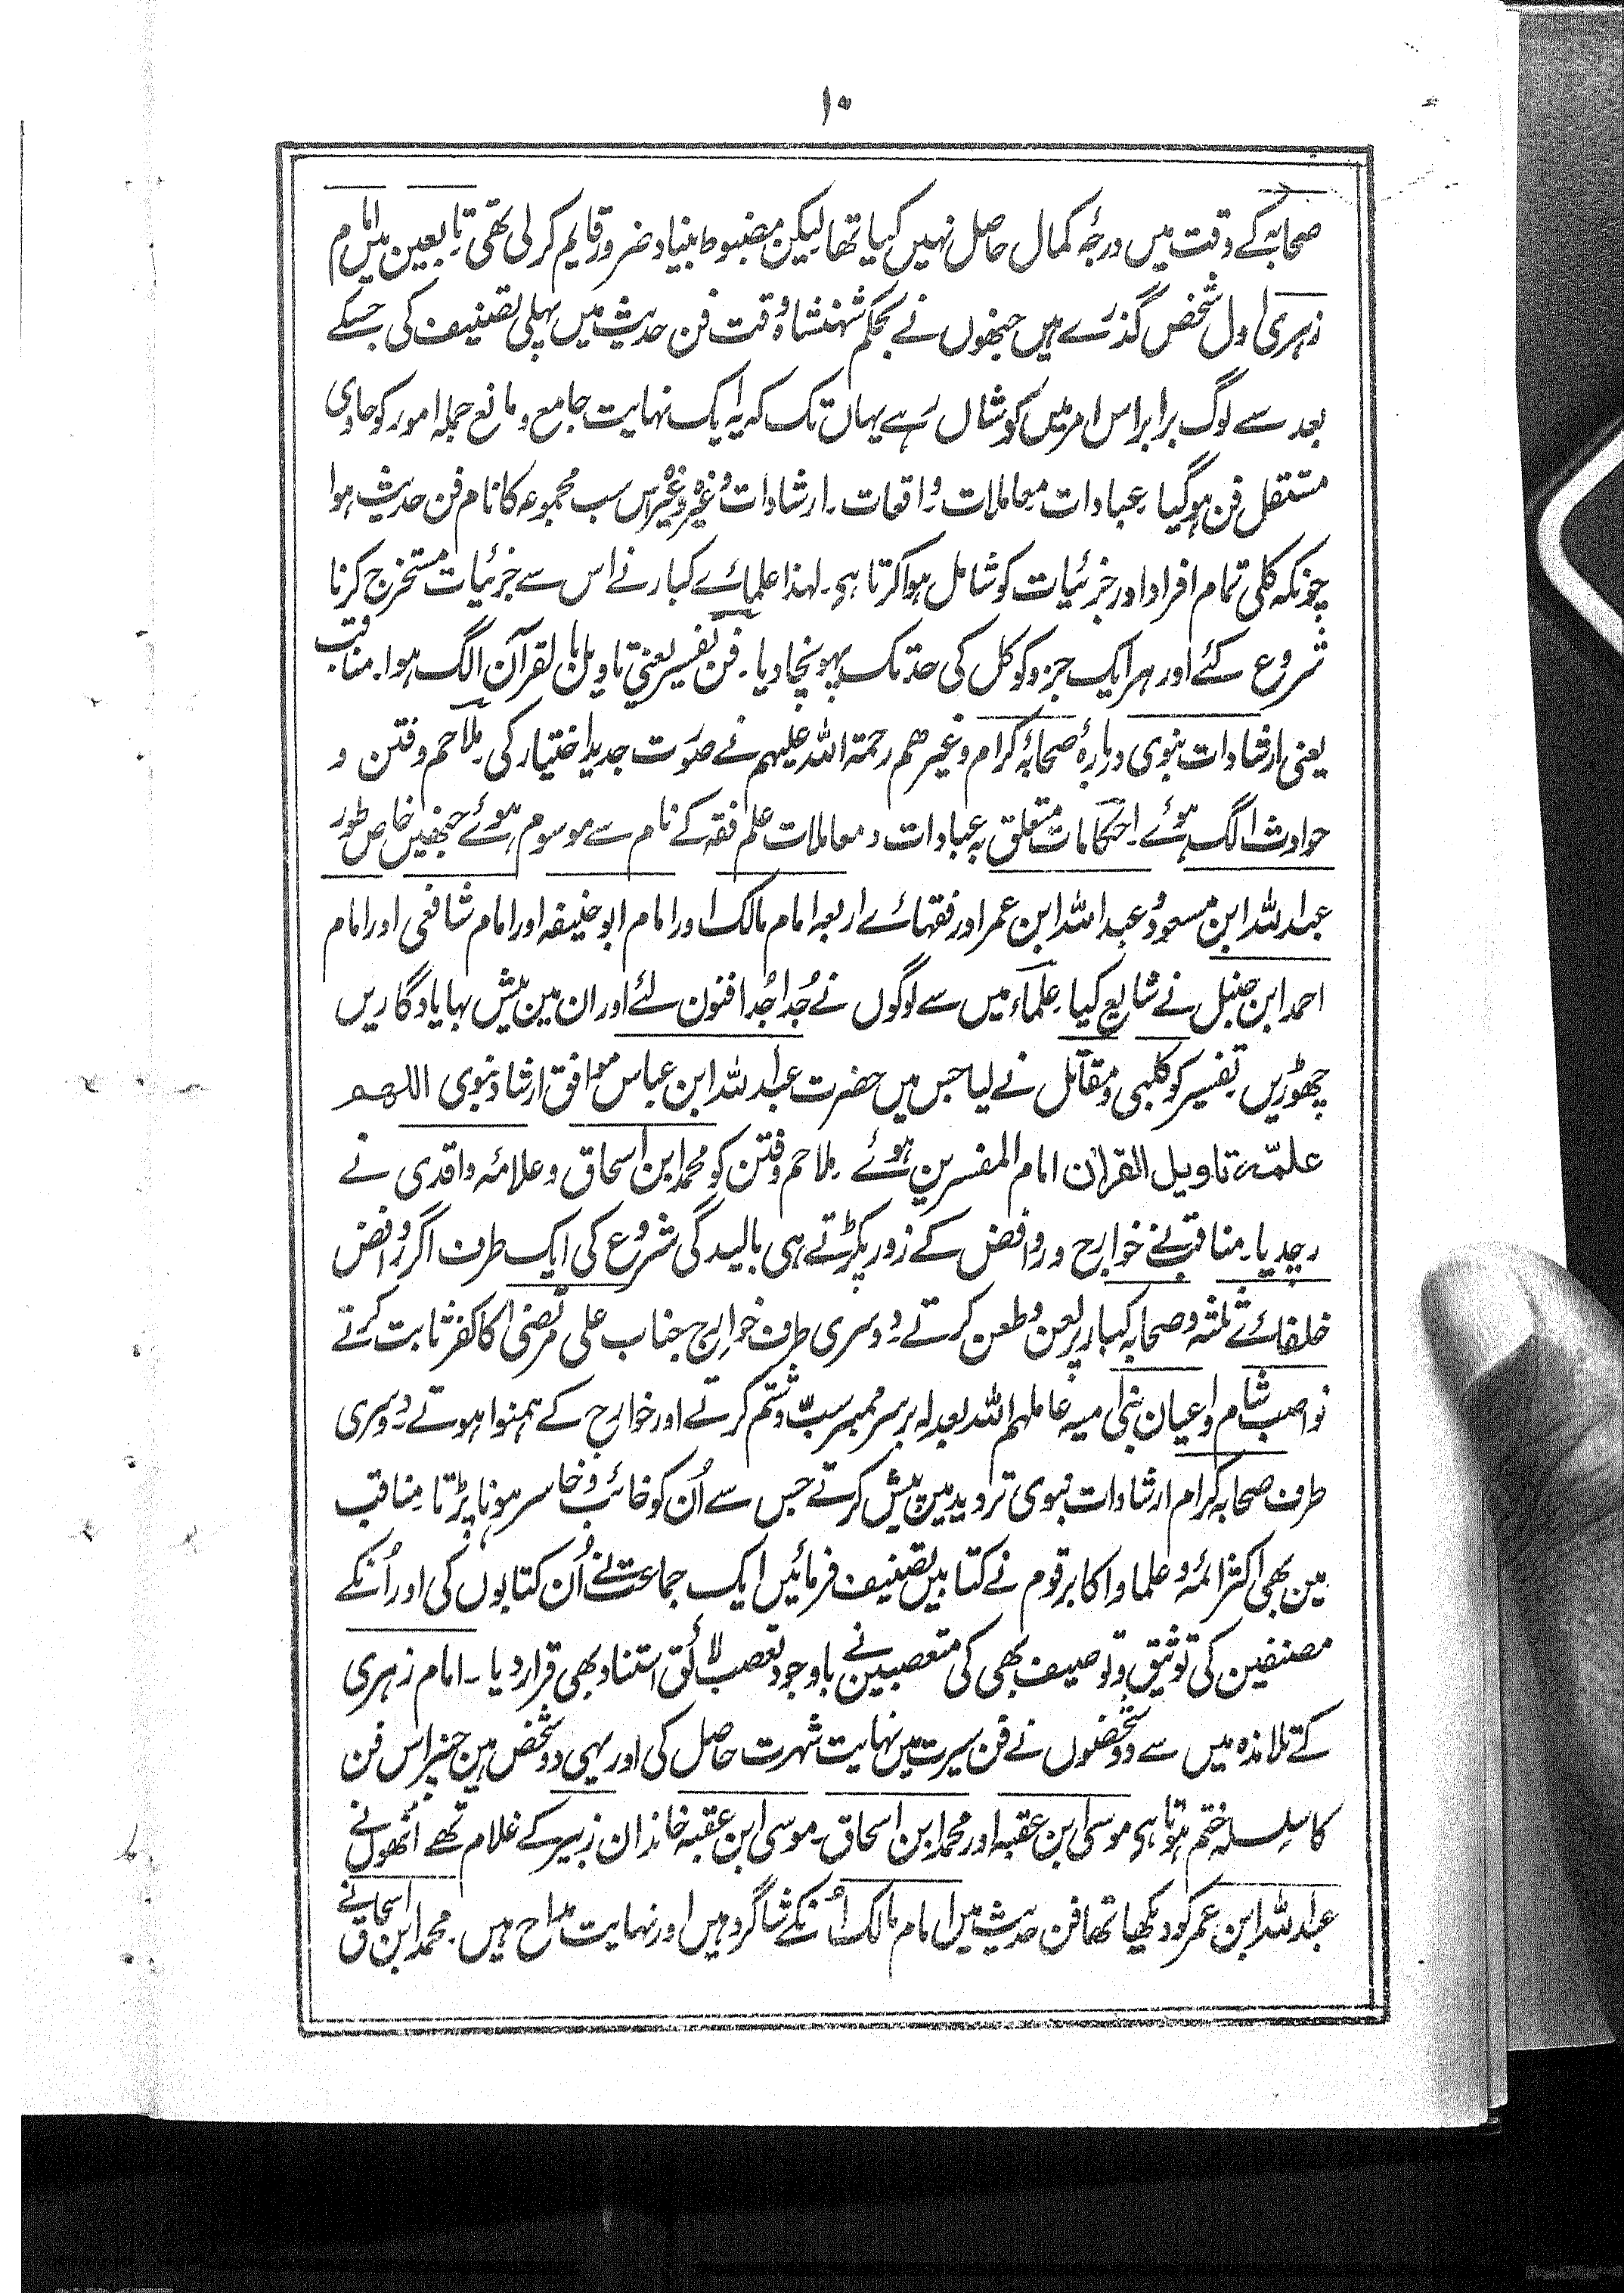 ۱۰
صحابہ کے وقت میں درجۂ کمال حاصل نہیں کیا تھا لیکن مضبوط بنیاد ضرور قایم کر لی تھی تابعین میں امام
زہری اول شخص گذرے ہیں جنھوں نے بحکم شہنشاہ وقت فن حدیث میں پہلی تصنیف کی جسکے
بعد سے لوگ برابر اس امر میں کوشاں رہے یہاں تک کہ یہ ایک نہایت جامع و مانع جملہ امور کو حاوی
مستقل فن ہوگیا۔ عبادات۔ معاملات۔ واقعات۔ ارشادات وغیرہ وغیرہ اس سب مجموعہ کا نام فن حدیث ہوا
چونکہ کلی تمام افراد اور جزئیات کو شامل ہوا کرتا ہے۔ لہذا علمائے کبار نے اس سے جزئیات مستخرج کرنا
شروع کئے اور ہر ایک جزو کو کل کی حد تک پہونچا دیا۔ فن تفسیر یعنی تاویل بالقرآن الگ ہوا۔ مناقب
یعنی ارشادات نبوی دربارۂ صحابۂ کرام وغیرھم رحمۃ اللہ علیہم نے صورت جدید اختیار کی۔ ملاحم و فتن و
حوادث الگ ہوئے۔ احکامات متعلق بہ عبادات و معاملات علم فقہ کے نام سے موسوم ہوئے جنھیں خاص طور
عبداللہ ابن مسعود و عبداللہ ابن عمر اور فقہائے اربعہ امام مالک اور امام ابو حنیفہ اور امام شافعی اور امام
احمد ابن حنبل نے شایع کیا۔ علماء میں سے لوگوں نے جُدا جُدا فنون لئے اور ان مین بیش بہا یادگاریں
چھوڑیں۔ تفسیر کو کلبی و مقاتل نے لیا جس میں حضرت عبداللہ ابن عباس موافق ارشاد نبوی اللہم
علمّہ تاویل القراٰن امام المفسرین ہوئے۔ ملاحم و فتن کو محمد ابن اسحاق و علامۂ واقدی نے
رچدیا۔ مناقب نے خوارج و روافض کے زور پکڑتے ہی بالیدگی شروع کی ایک طرف اگر روافض
خلفائے ثلثہ و صحابہ کبار پر لعن و طعن کرتے۔ دوسری طرف خوارج جناب علی مرتضیٰ کا کفر ثابت کرتے
نواصب شام و اعیان بنی امیہ عاملہم اللہ بعدلہ برسر ممبر سبّ و شتم کرتے اور خوارج کے ہمنوا ہوتے۔ دوسری
طرف صحابہ کرام ارشادات نبوی تردید مین پیش کرتے جس سے اُن کو خائب و خاسر ہونا پڑتا۔ مناقب
مین بھی اکثر ائمہ و علما و اکابر قوم نے کتابیں تصنیف فرمائیں ایک جماعت نے اُن کتابوں کی اور اُنکے
مصنفین کی توثیق و توصیف بھی کی متعصبین نے باوجود تعصب لائق استناد بھی قرار دیا۔ امام زہری
کے تلامذہ میں سے دو شخصوں نے فن سیرت میں نہایت شہرت حاصل کی اور یہی دو شخص ہین جنپر اس فن
کا سلسلہ ختم ہوتا ہے موسی ابن عقبہ اور محمد ابن اسحاق۔ موسی ابن عقبہ خاندان زبیر کے غلام تھے اُنھوں نے
عبداللہ ابن عمر کو دیکھا تھا فن حدیث میں امام مالک اُنکے شاگرد ہیں اور نہایت مداح ہیں۔ محمد ابن اسحاق نے